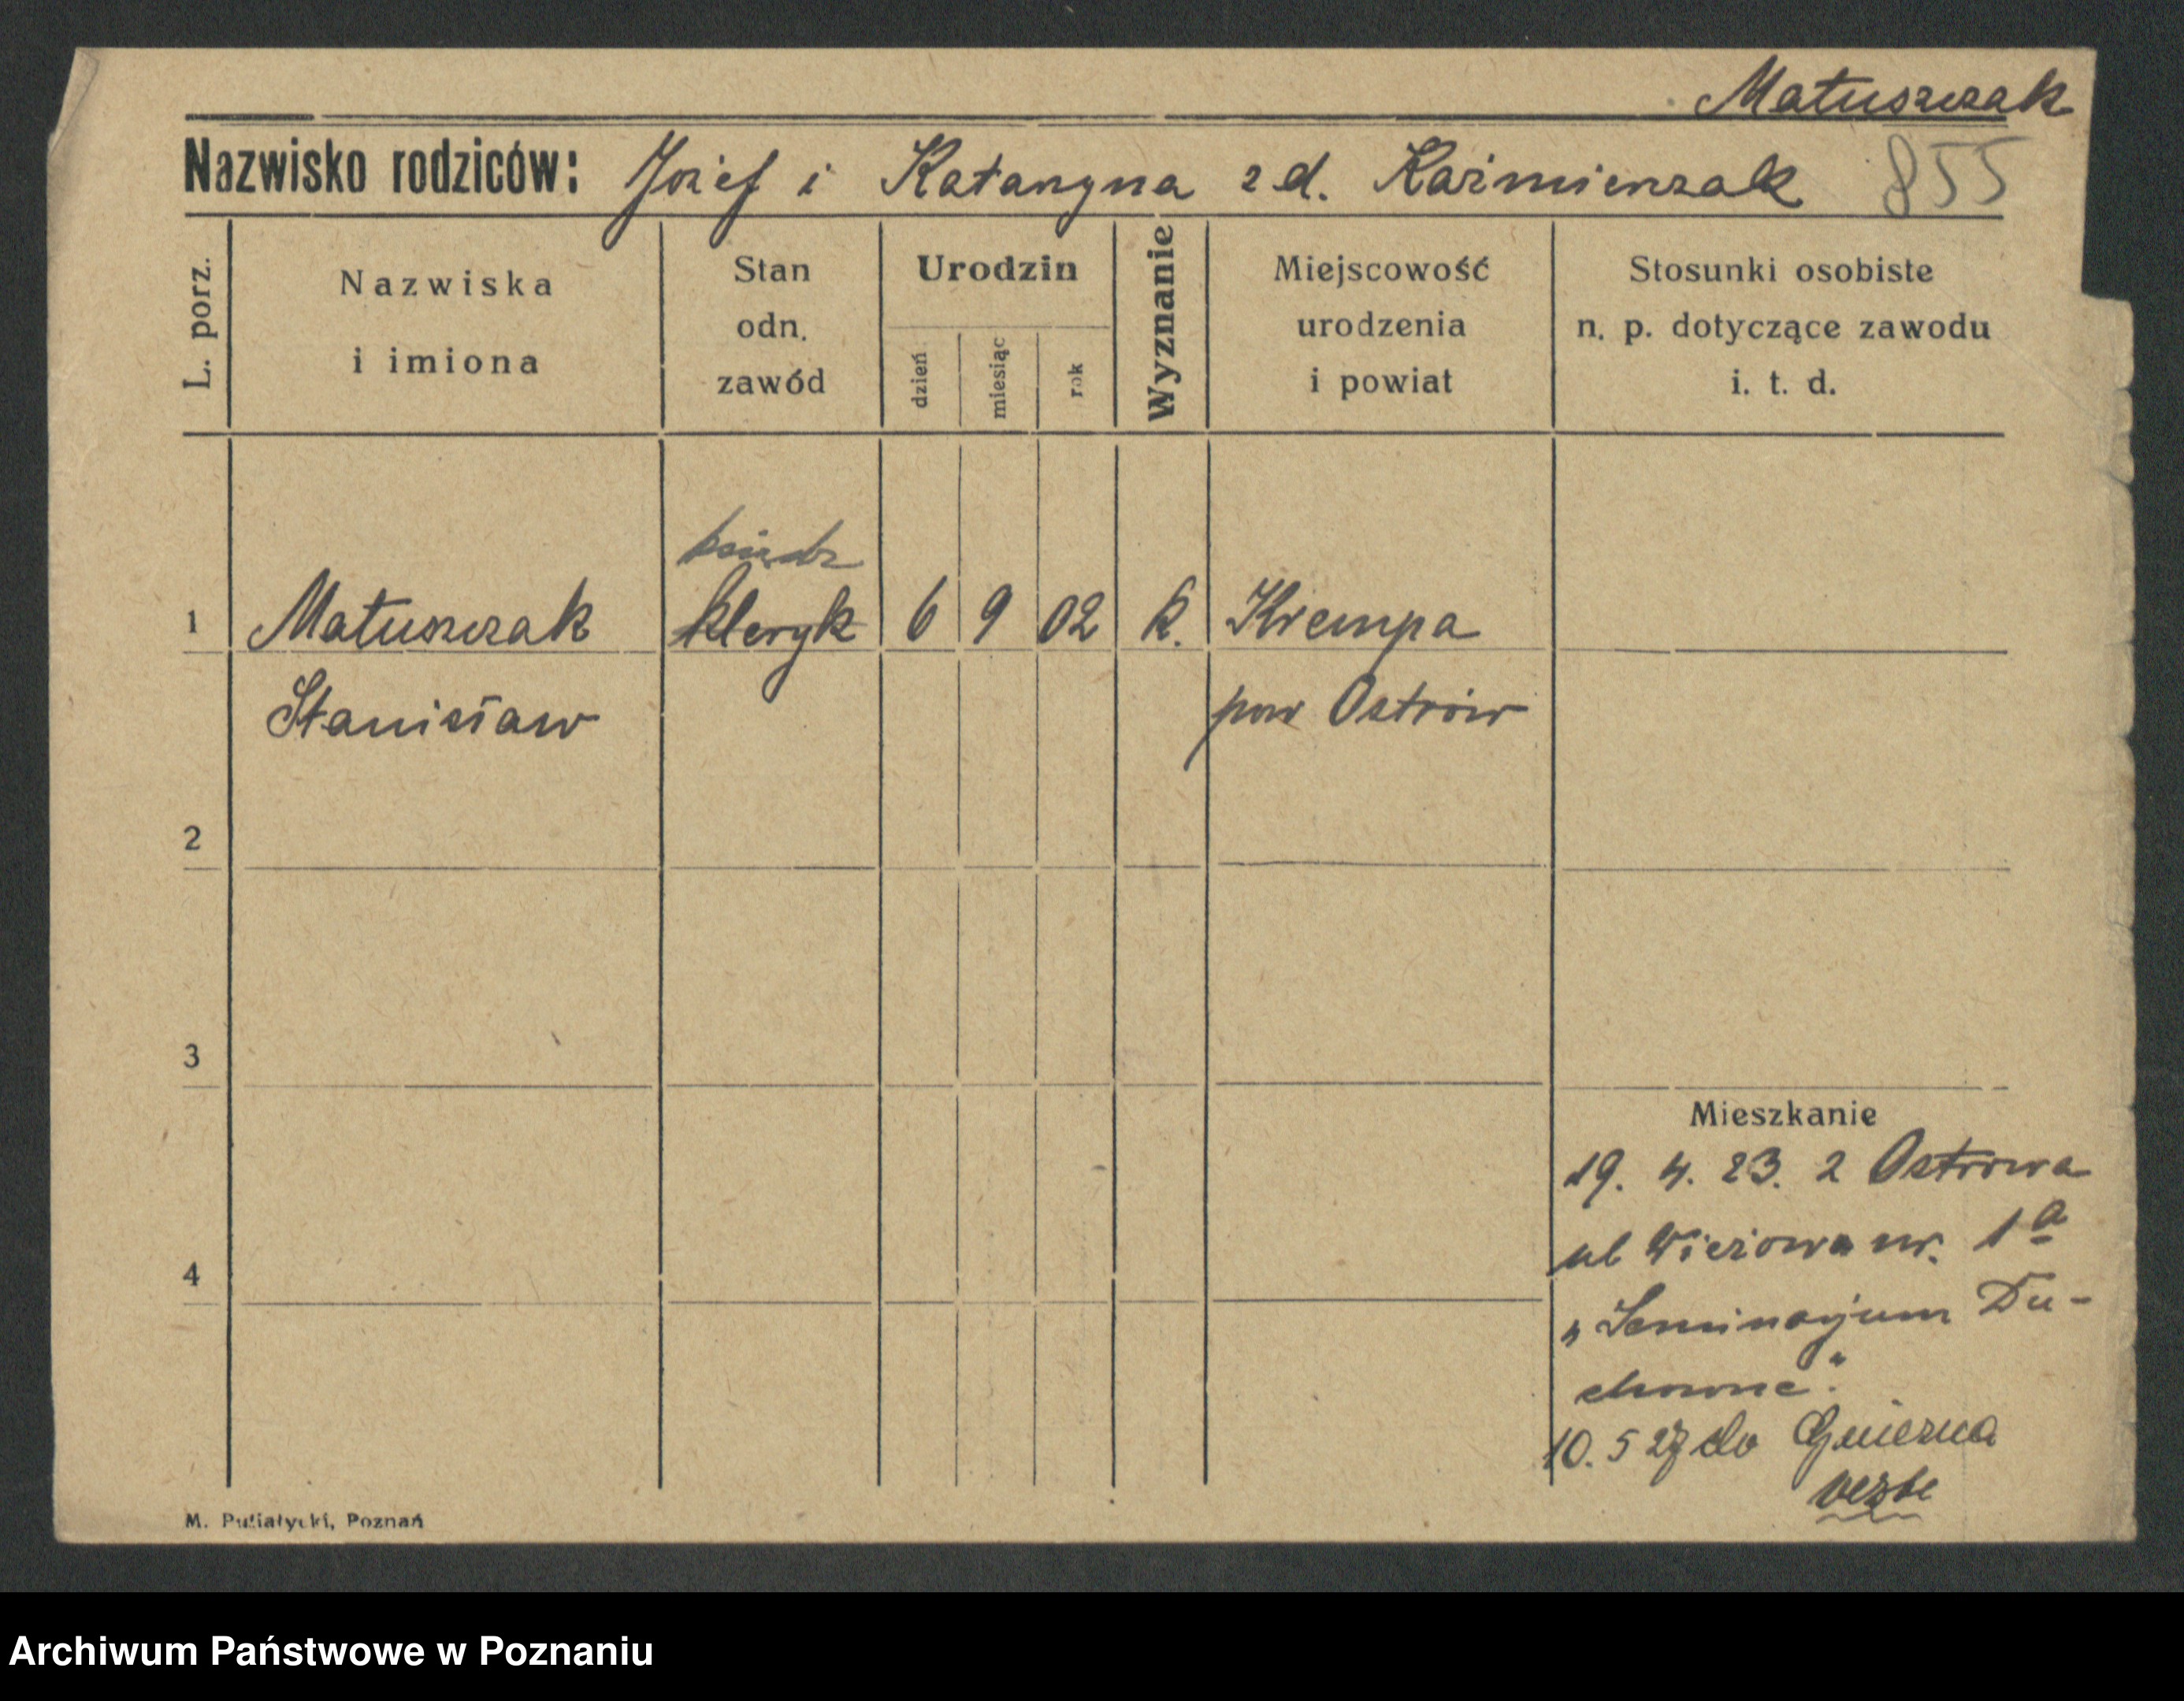 Matuszczak
Nazwisko rodziców: Józef i Katarzyna z d. Kaźmierczak 855
L. porz.
Nazwiska
i imiona
Stan
odn.
zawód
Urodzin
dzień
miesiąc
rok
Wyznanie
Miejscowość
urodzenia
i powiat
Stosunki osobiste
n. p. dotyczące zawodu
i. t. d.
ksiądz
1 Matuszczak kleryk 6 9 02 k. Krempa
Stanisław pow Ostrów
2
3
4
Mieszkanie
19. 4. 23. z Ostrowa
ul Wieżowa nr. 1a
„Seminarjum Du-
chowne".
10. 5 27 do Gniezna
M. Putiatycki, Poznań
Archiwum Państwowe w Poznaniu